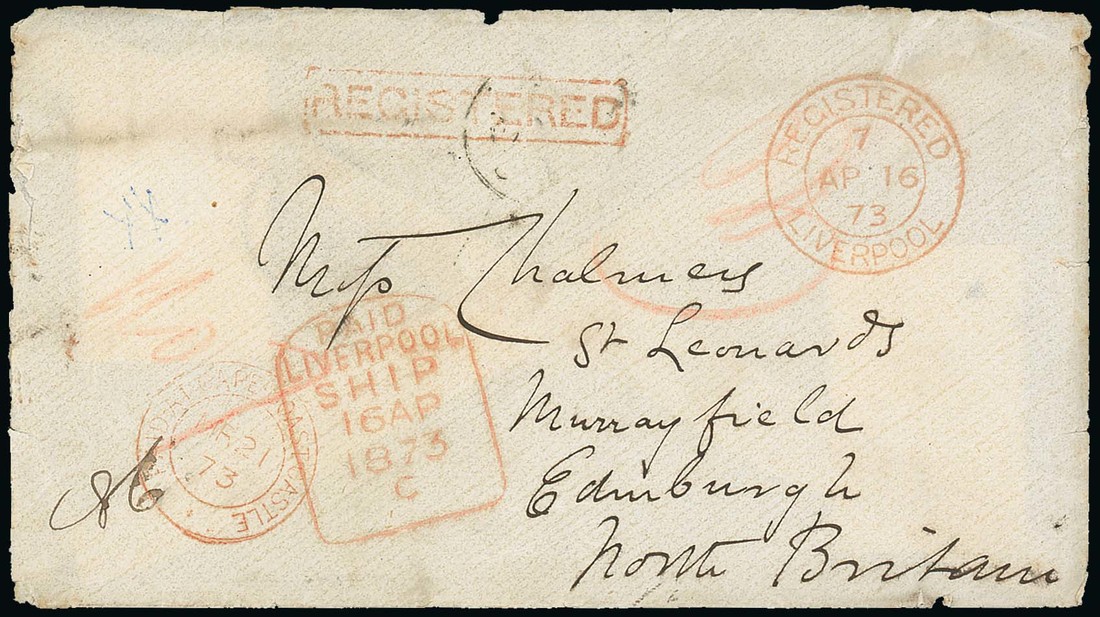 REGISTERED
REGISTERED
7
AP 16
73
LIVERPOOL
Miss Chalmers
St Leonards
Murrayfield
Edinburgh
North Britain
PAID
LIVERPOOL
SHIP
16 AP
1873
C
CAPE COAST CASTLE
21
73